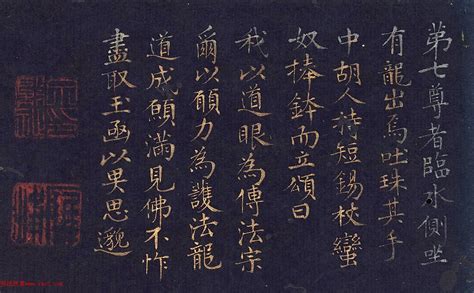 第七尊者臨水側坐
有龍出焉吐珠其手
中胡人持短錫杖蠻
奴捧鉢而立頌曰
我以道眼為傳法宗
爾以願力為護法龍
道成願滿見佛不怍
盡取玉函以畀思邈